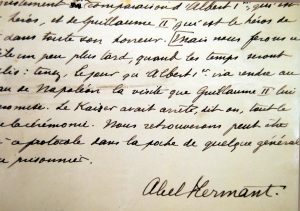 justement en comparaison d'Albert Ier, qui est
héros, et de Guillaume II qui est le héros de
dans toute son horreur. Mais nous ferons ce
un peu plus tard, quand les temps seront
: tenez, le jour où Albert Ier ira rendre au
de Napoléon la visite que Guillaume II lui
promise. Le Kaiser avait arrêté, dit-on, tout le
cérémonie. Nous retrouverons peut-être
protocole dans la poche de quelque général
prisonnier.
Abel Hermant.